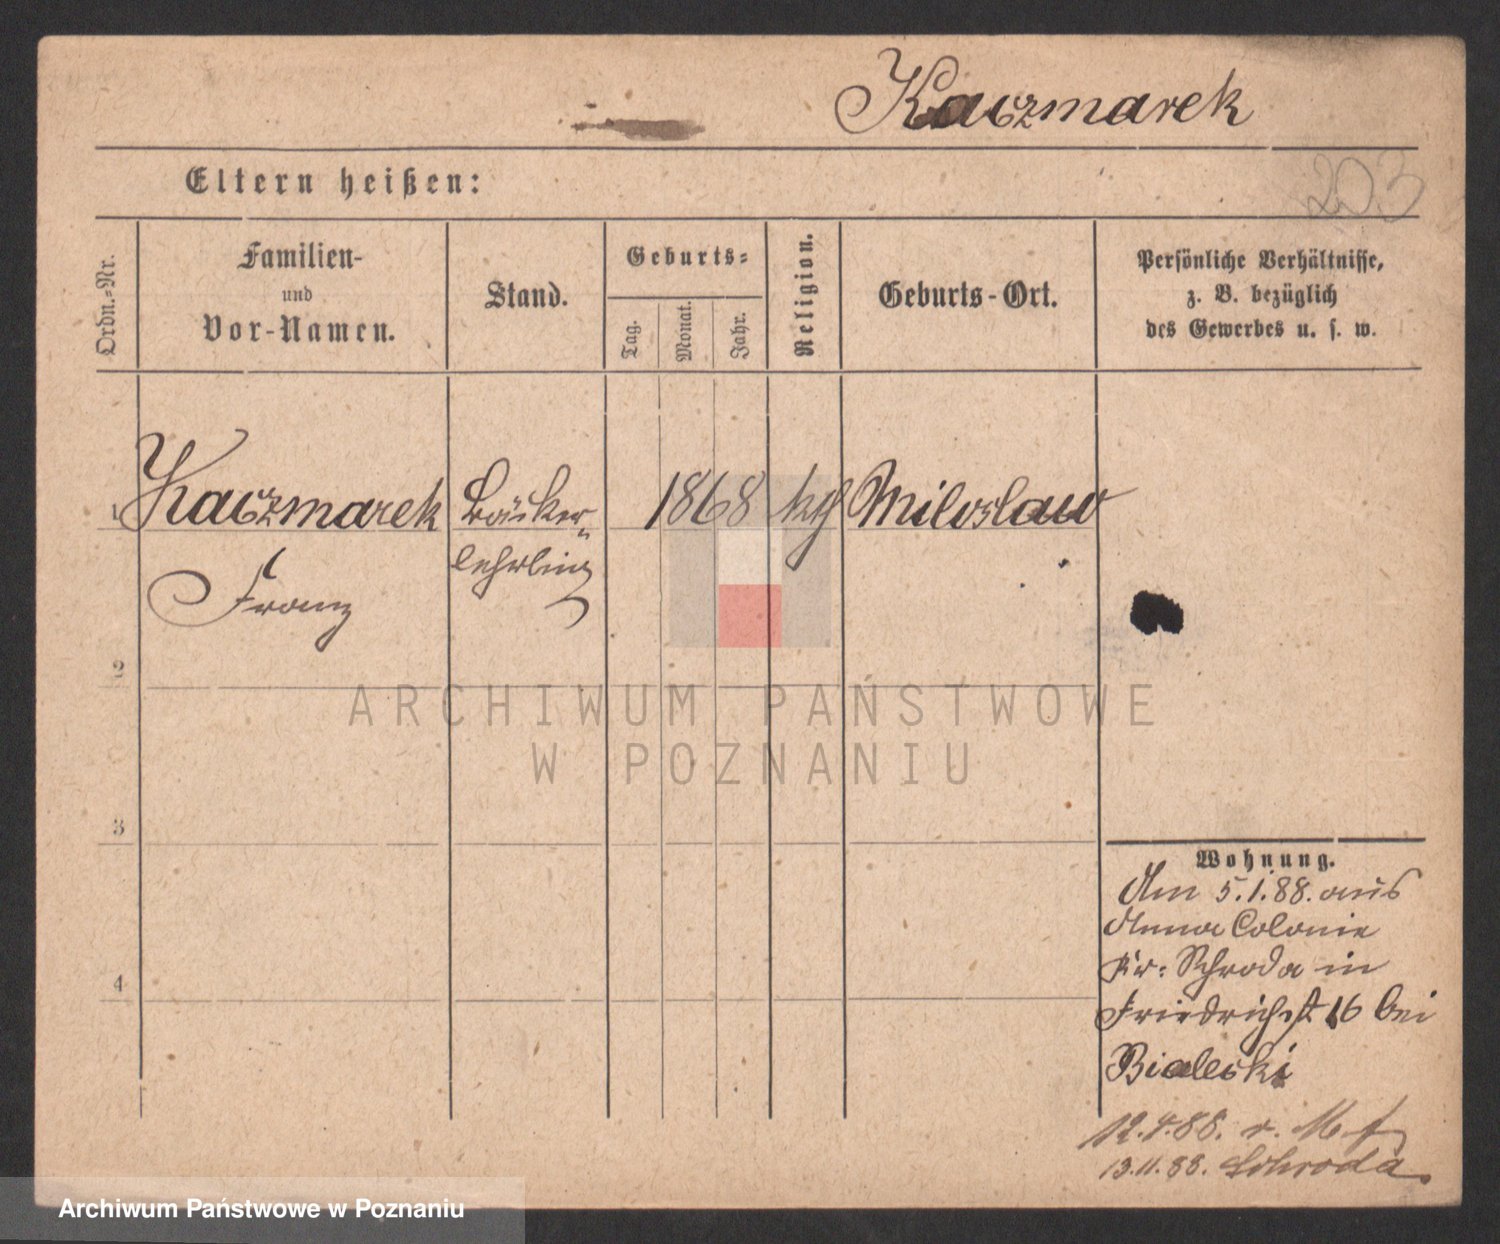 Kaczmarek
203
Eltern heißen:
Ordn.-Nr.
Familien-
und
Vor-Namen.
Stand.
Geburts-
Tag.
Monat.
Jahr.
Religion.
Geburts-Ort.
Persönliche Verhältnisse,
z. B. bezüglich
des Gewerbes u. s. w.
1 Kaczmarek Bäcker- 1868 kth Miloslaw
lehrling
Franz
2
ARCHIWUM PAŃSTWOWE
W POZNANIU
3
4
Wohnung.
Am 5.1.88. aus
Anna Colonie
Kr: Schroda in
Friedrichst 16 bei
Bialeski
12.4.88.
13.11.88. Schroda.
Archiwum Państwowe w Poznaniu